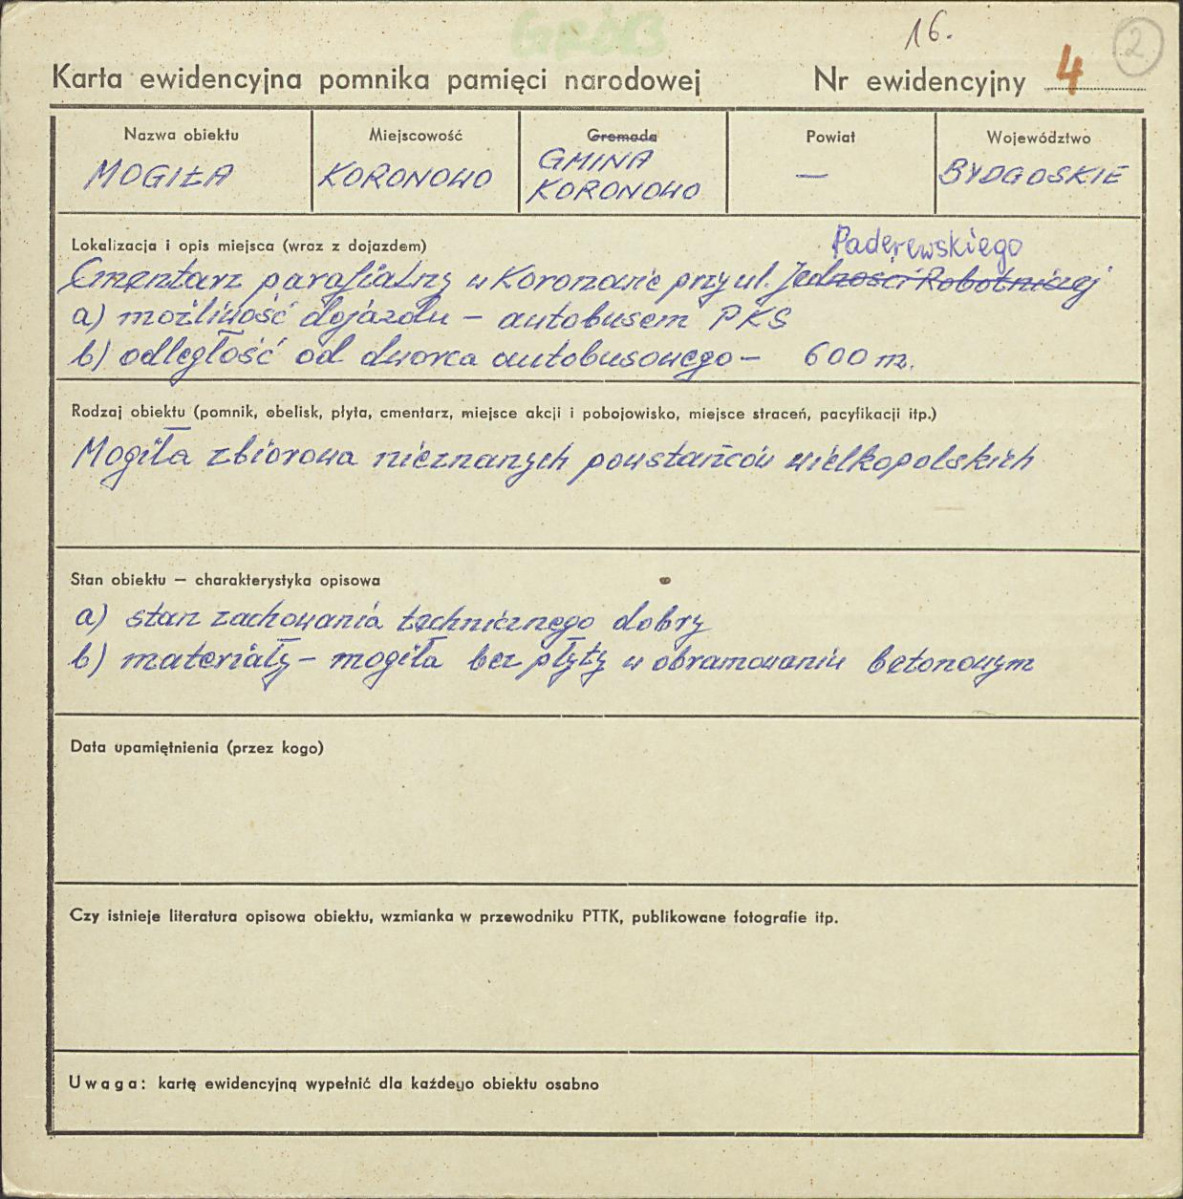 GRÓB
16.
2
Karta ewidencyjna pomnika pamięci narodowej Nr ewidencyjny 4
Nazwa obiektu Miejscowość Gromada Powiat Województwo
MOGIŁA KORONOWO GMINA KORONOWO — BYDGOSKIE
Lokalizacja i opis miejsca (wraz z dojazdem)
Paderewskiego
Cmentarz parafialny w Koronowie przy ul. Jedności Robotniczej
a) możliwość dojazdu – autobusem PKS
b) odległość od dworca autobusowego – 600 m.
Rodzaj obiektu (pomnik, obelisk, płyta, cmentarz, miejsce akcji i pobojowisko, miejsce straceń, pacyfikacji itp.)
Mogiła zbiorowa nieznanych powstańców wielkopolskich
Stan obiektu — charakterystyka opisowa
a) stan zachowania technicznego dobry
b) materiały – mogiła bez płyty w obramowaniu betonowym
Data upamiętnienia (przez kogo)
Czy istnieje literatura opisowa obiektu, wzmianka w przewodniku PTTK, publikowane fotografie itp.
Uwaga: kartę ewidencyjną wypełnić dla każdego obiektu osobno